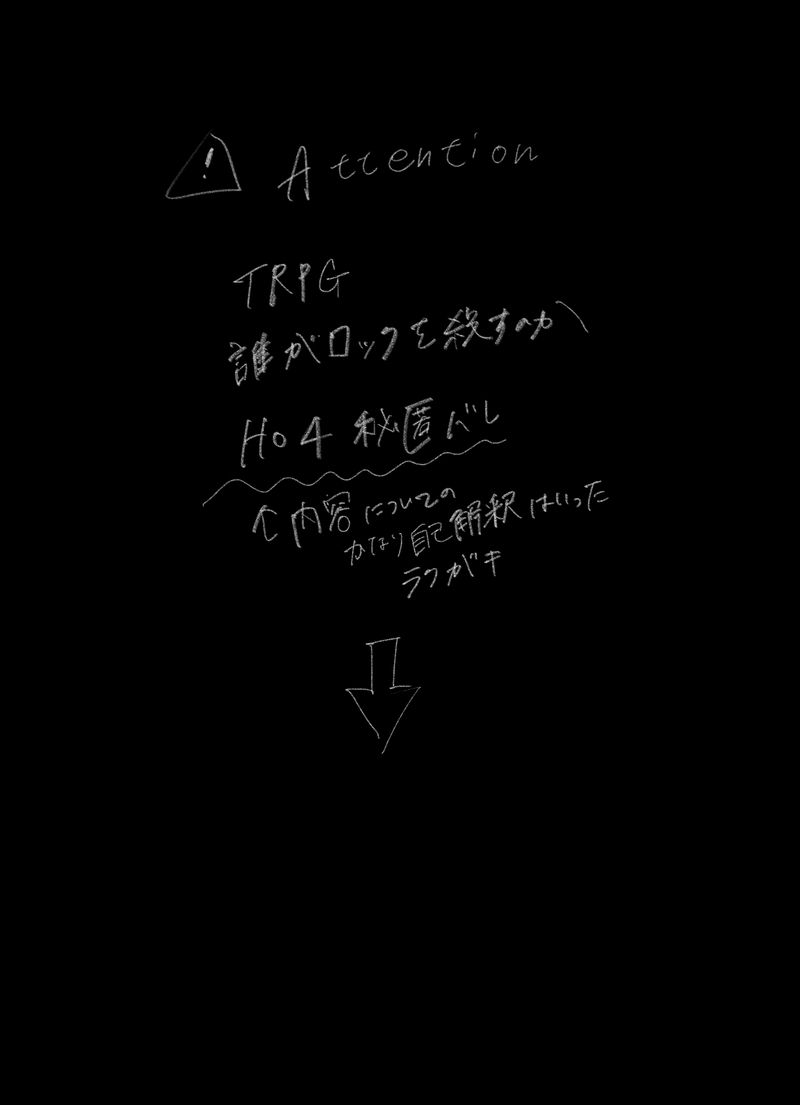 ! Attention
TRPG
誰がロックを殺すのか
HO4 秘匿バレ
↑内容についての
かなり自己解釈はいった
ラクガキ